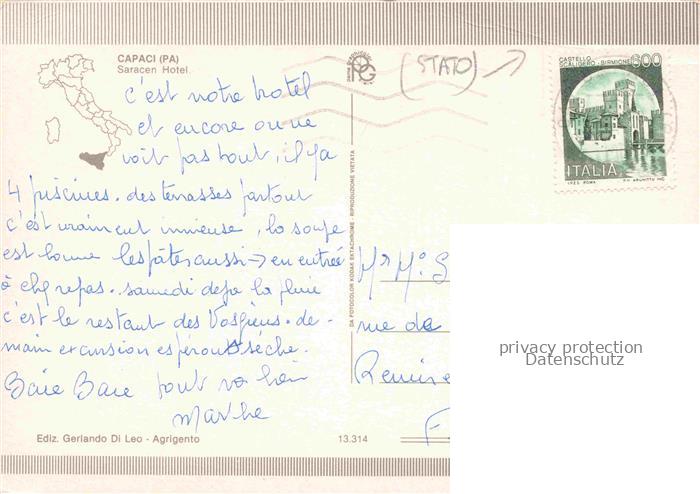 CAPACI (PA)
Saracen Hotel
(STATO)
CASTELLO
SCALIGERO - SIRMIONE
600
ITALIA
I.P.Z.S. ROMA
c'est notre hotel
et encore on ne
voit pas tout, il y a
4 piscines. des terrasses partout
c'est vraiment immense, la soupe
est bonne les pâtes aussi → en entrée
à chq repas. samedi de la pluie
c'est le restant des Vosgiens. de-
main excursion espérons sèche.
Baie Baie tout va bien
Marthe
Mr Me S
rue de
Remire
F
privacy protection
Datenschutz
DA FOTOCOLOR KODAK EKTACHROME - RIPRODUZIONE VIETATA
Ediz. Gerlando Di Leo - Agrigento
13.314